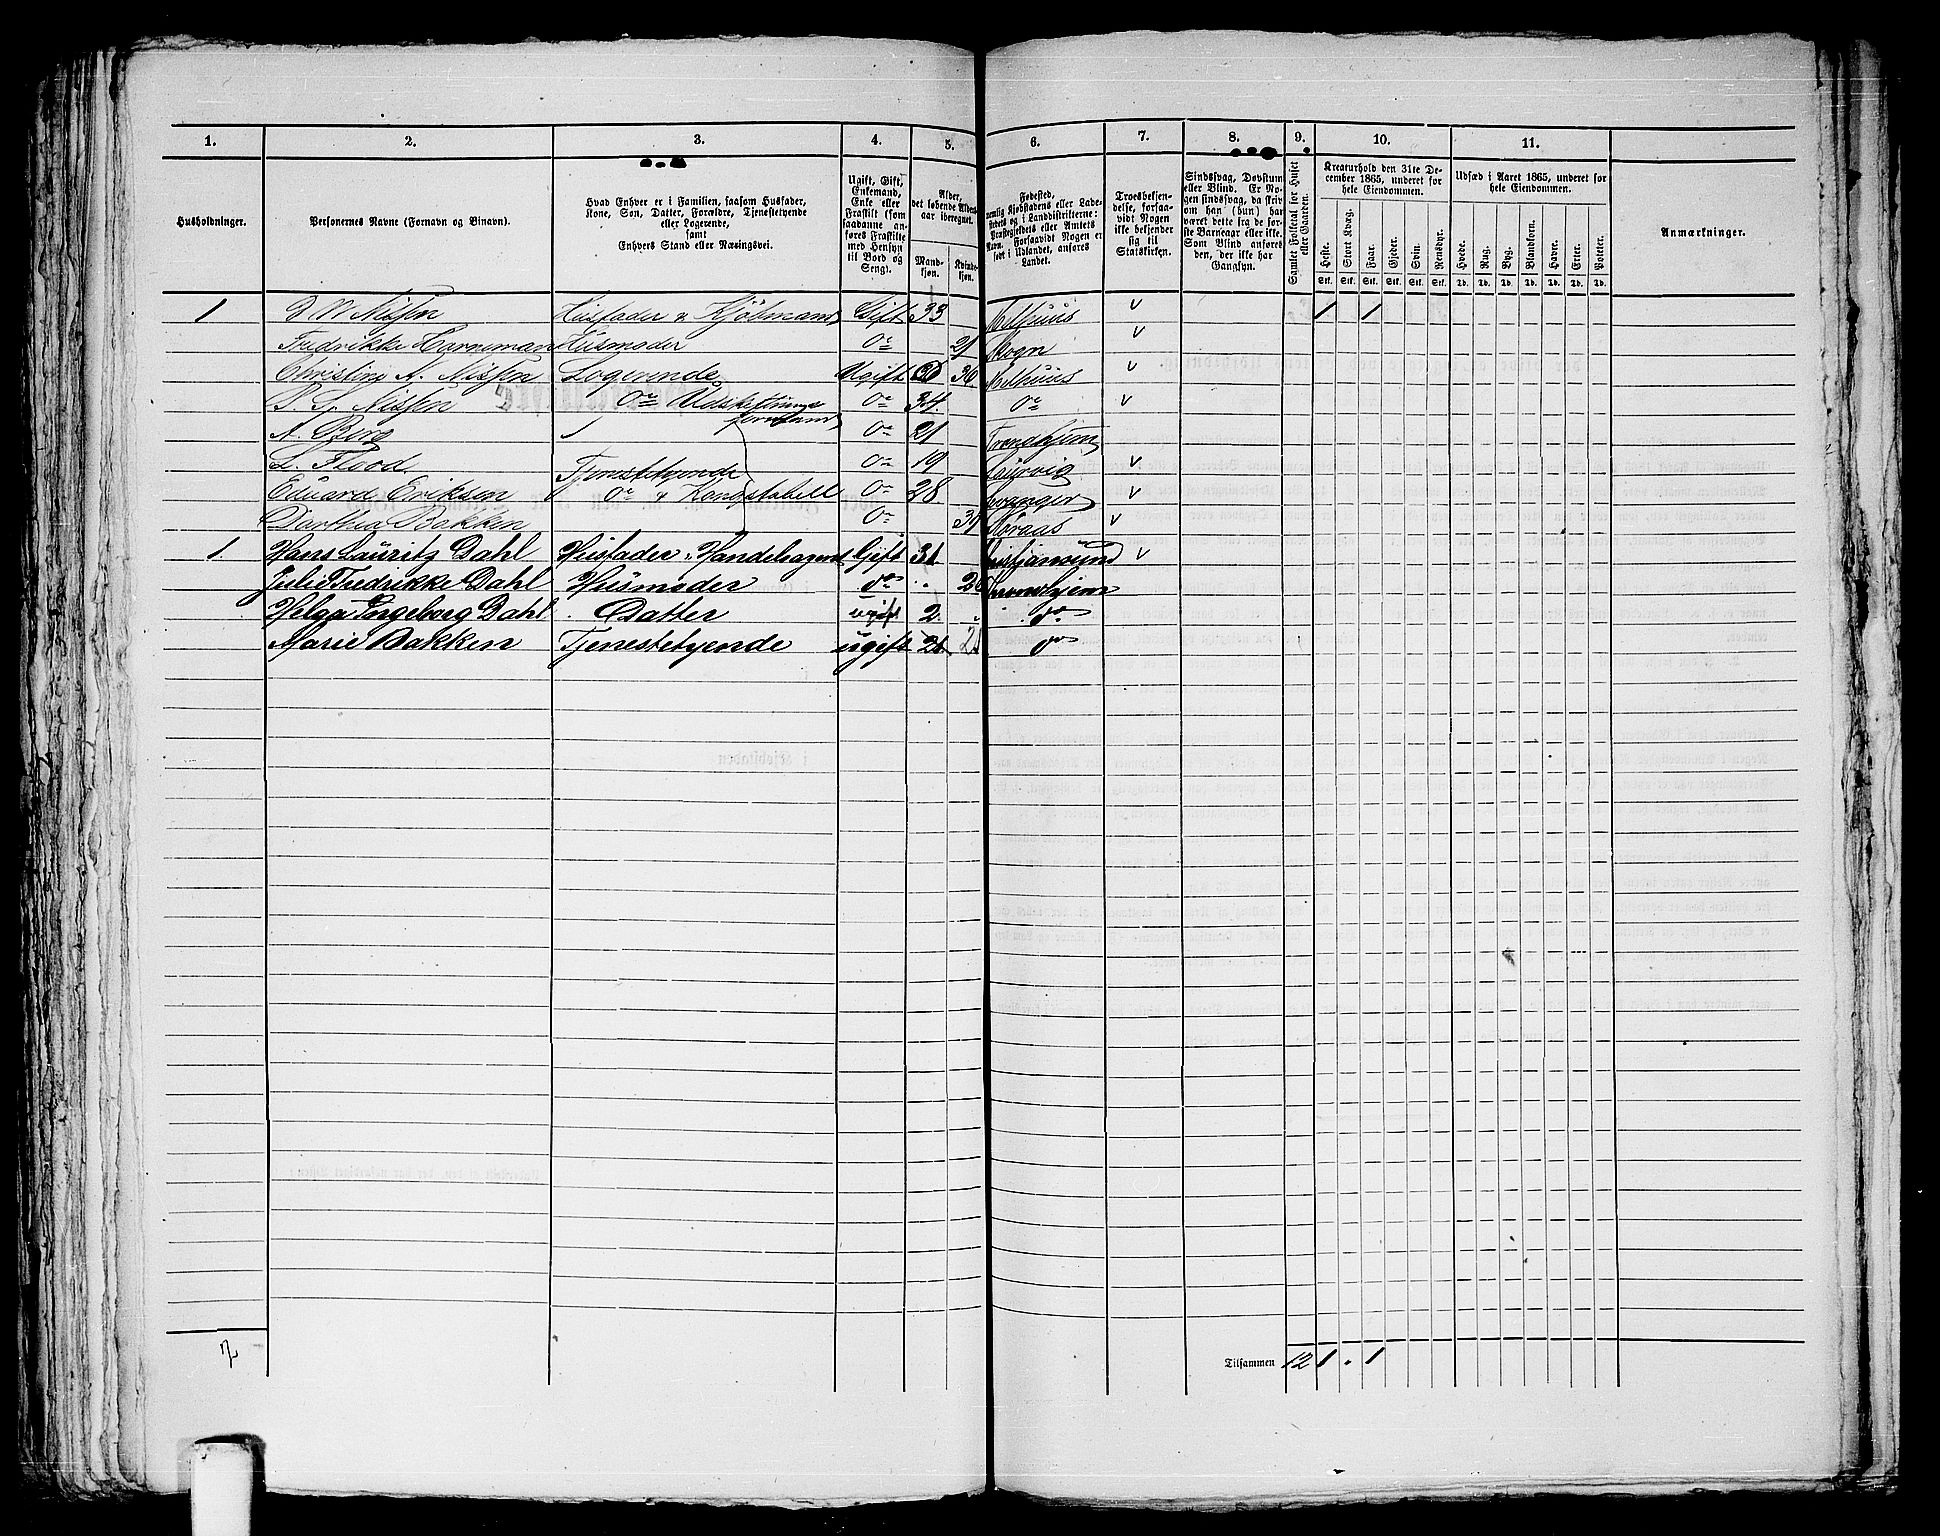 1. 2. 3. 4. 5. 6. 7. 8. 9. 10. 11.
Husholdninger.
Personernes Navne (Fornavn og Binavn).
Hvad Enhver er i Familien, saasom Husfader,
Kone, Søn, Datter, Forældre, Tjenestetyende
eller Logerende,
samt
Enhvers Stand eller Næringsvei.
Ugift, Gift,
Enkemand,
Enke eller
Fraskilt (som
saadanne an-
føres Fraskilte
med Hensyn
til Bord og
Seng).
Alder,
det løbende Alders-
aar iberegnet.
Mand-
kjøn.
Kvinde-
kjøn.
Fødested,
nemlig Kjøbstadens eller Lade-
stedets og i Landdistrikterne:
Præstegjeldets eller Amtets
Navn. Forsaavidt Nogen er
født i Udlandet, anføres
Landet.
Troesbekjen-
delse, forsaa-
vidt Nogen
ikke bekjender
sig til
Statskirken.
Sindssvag, Døvstum
eller Blind. Er No-
gen sindssvag, da skriv
om han (hun) har
været dette fra de før-
ste Barneaar eller ikke.
Som Blind anføres
den, der ikke har
Gangsyn.
Samlet Folketal for Huset
eller Gaarden.
Kreaturhold den 31te De-
cember 1865, underet for
hele Eiendommen.
Heste. Stort Kvæg. Faar. Gjeder. Svin. Rensdyr.
Stk. Stk. Stk. Stk. Stk. Stk.
Udsæd i Aaret 1865, underet for
hele Eiendommen.
Hvede. Rug. Byg. Blandkorn. Havre. Erter. Poteter.
Td. Td. Td. Td. Td. Td. Td.
Anmærkninger.
1 Nissen Husfader & Kjöbmand Gift 33 Melhuus v 1 1
Fredrikke Horneman Husmoder Do 21 Skogn v
Christine A. Nissen Logerende Ugift 36 Melhuus v
Nissen Do Udskiftnings Do 34 Do v
A. Borg Do 21 Trondhjem
L. Flood Tjenestetyende Do 19 Laurvig v
Eduard Eriksen Do & Do 28 Levanger v
Dorthea Bakken Do Röraas v
1. Hans Lauritz Dahl Husfader, Handelsagent Gift 31 Kristiansund v
Julie Fredrikke Dahl Husmoder do 26 Throndhjem
Helga Ingeborg Dahl Datter ugift 2 do
Marie Bakken Tjenestetyende ugift 21 21 do
2 Tilsammen 12 1 1